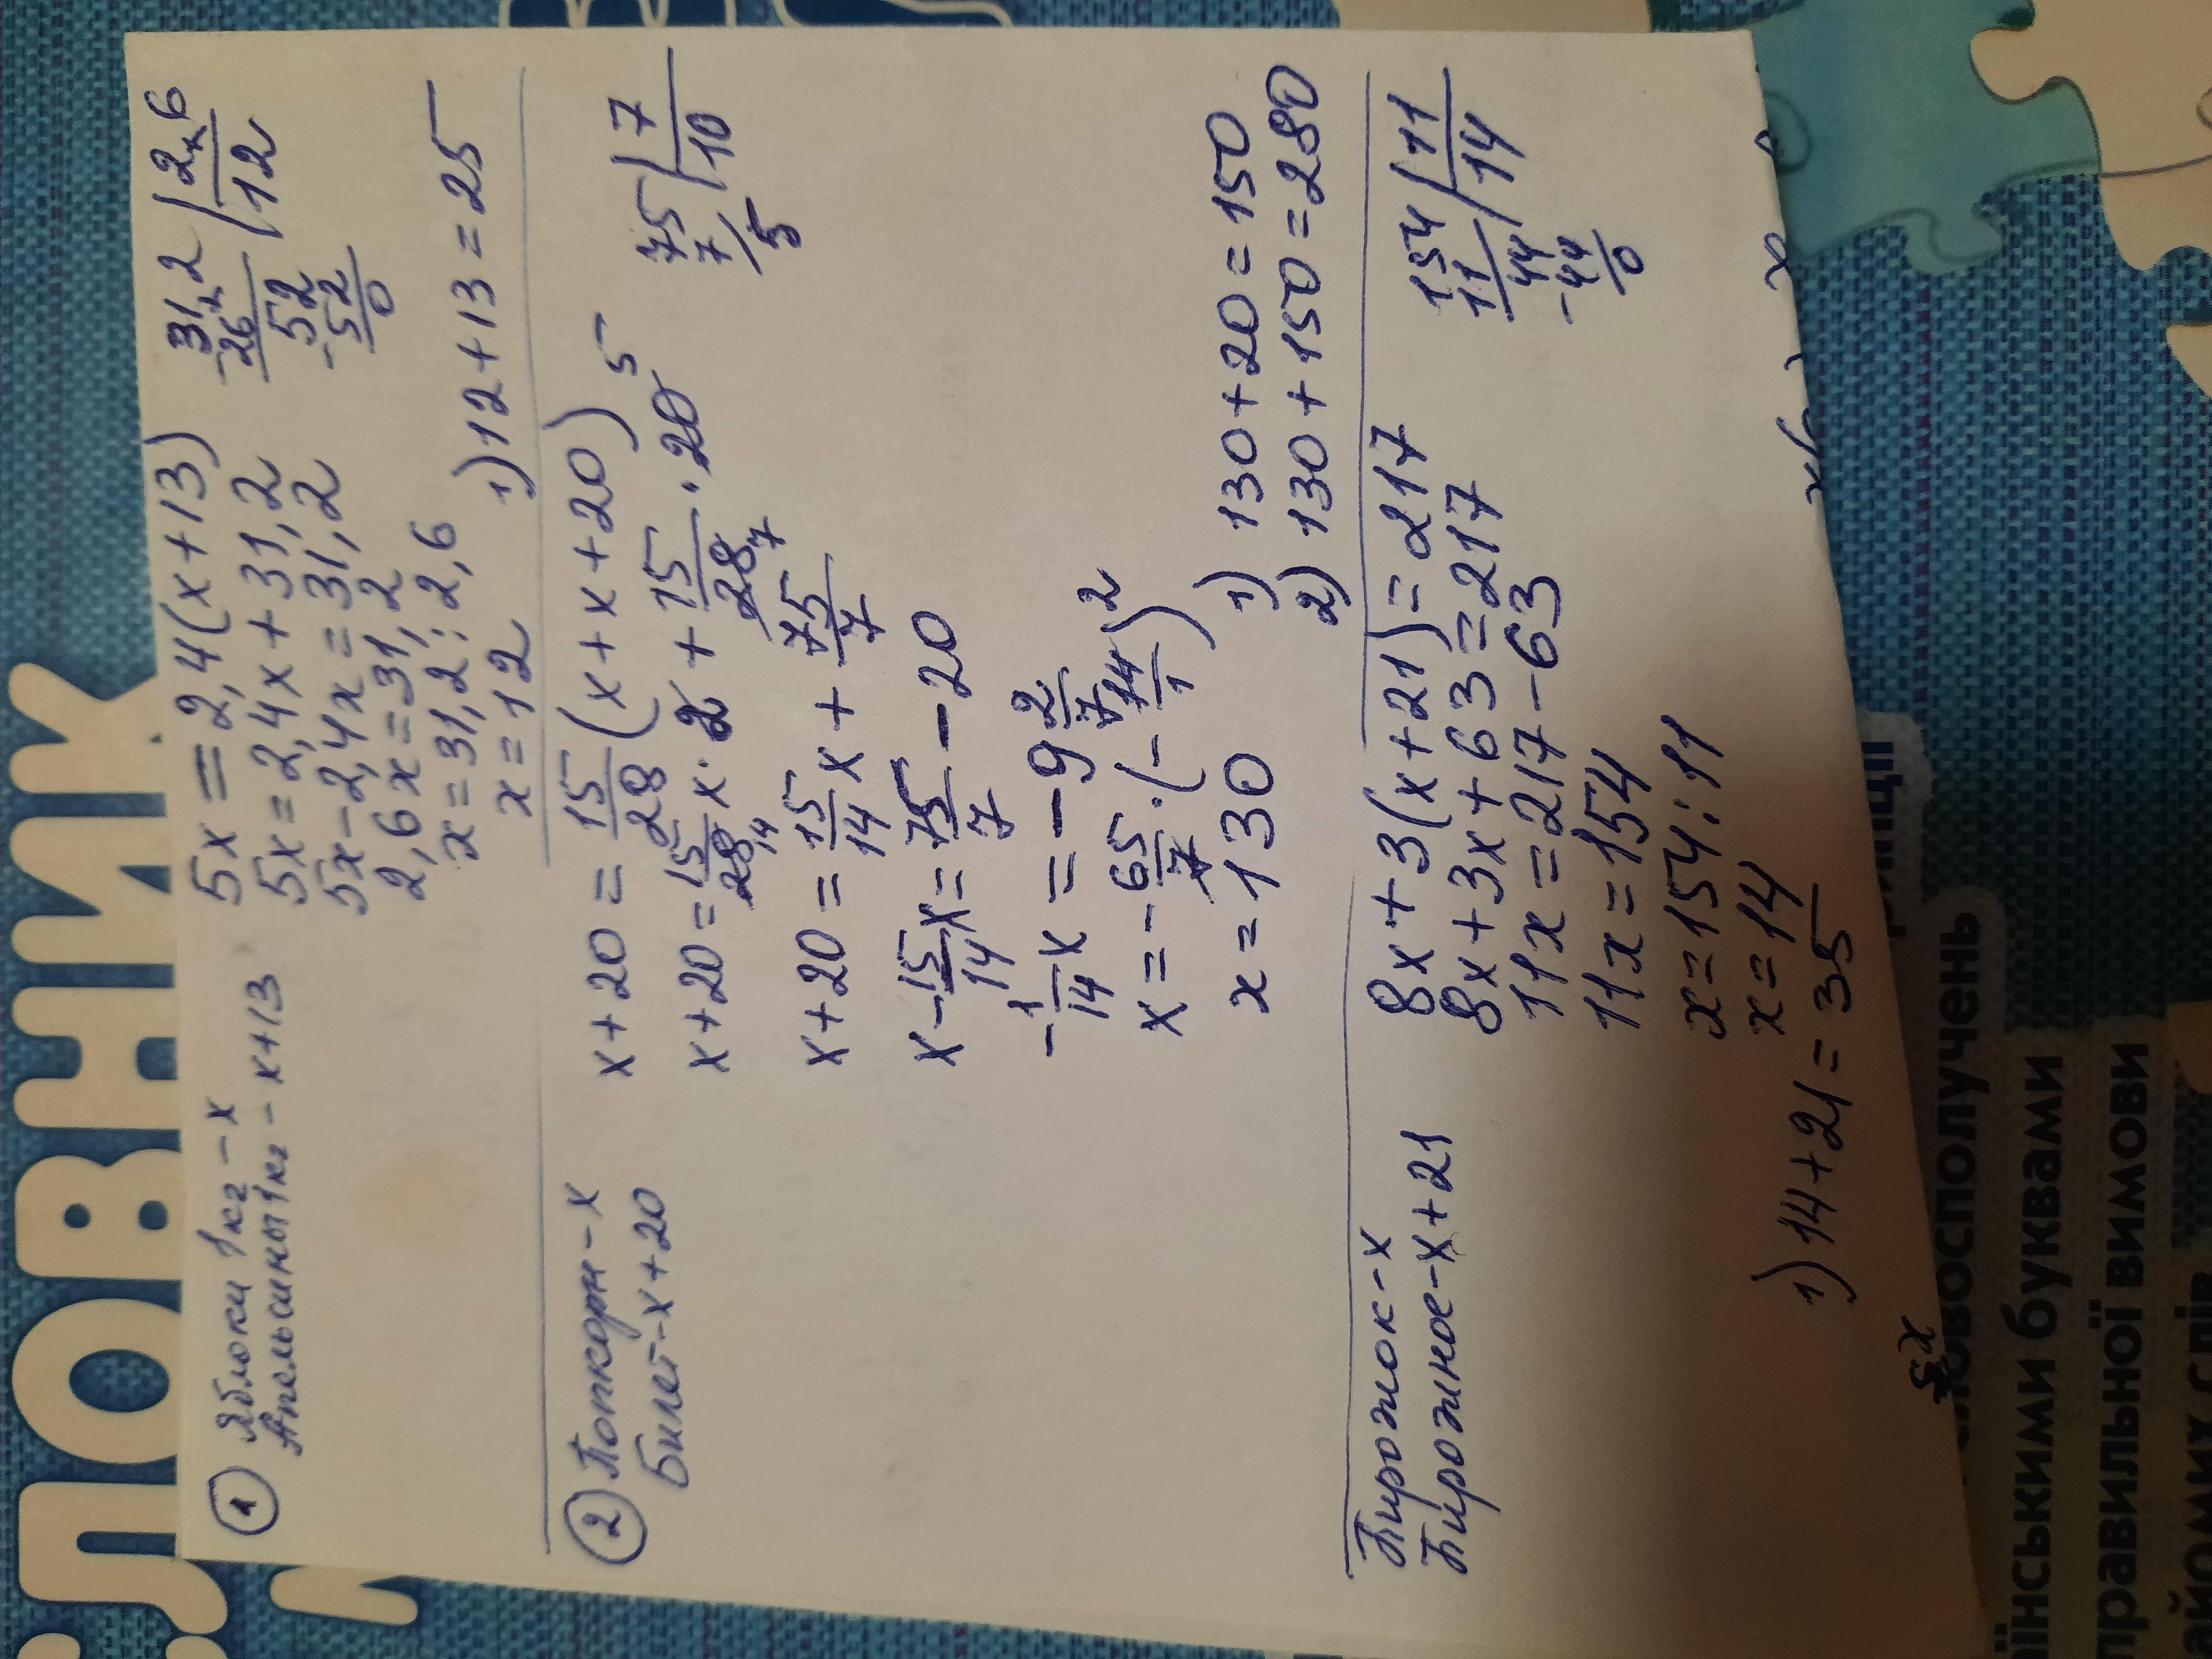 ЛОВНИК
① Яблоки 1кг – x
Апельсины 1кг – x+13
5x = 2,4(x+13)
5x = 2,4x + 31,2
5x – 2,4x = 31,2
2,6x = 31,2
x = 31,2 : 2,6
x = 12
31,2 | 2,6
26 | 12
52
-52
0
1) 12 + 13 = 25
② Попкорн – x
Билет – x + 20
x + 20 = 15/28 (x + x + 20)
x + 20 = 15/28 x · 2 + 15/28 · 20
14 7 5
x + 20 = 15/14 x + 75/7
x – 15/14 x = 75/7 – 20
– 1/14 x = – 9 2/7
x = – 65/7 · (– 14/1) 2
x = 130
75 | 7
7 | 10
5
1) 130 + 20 = 150
2) 130 + 150 = 280
Пирожок – x
Пирожное – x + 21
8x + 3(x + 21) = 217
8x + 3x + 63 = 217
11x = 217 – 63
11x = 154
x = 154 : 11
x = 14
154 | 11
11 | 14
44
-44
0
1) 14 + 21 = 35
їнськими буквами
правильної вимови